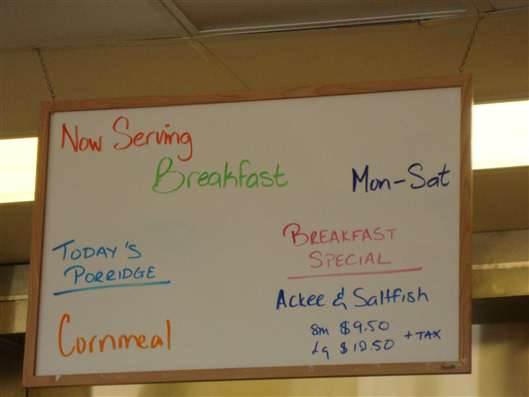 Now Serving
Breakfast
Mon-Sat
TODAY'S
PORRIDGE
Cornmeal
BREAKFAST
SPECIAL
ACKEE & Saltfish
sm $9.50
Lg $12.50 + TAX